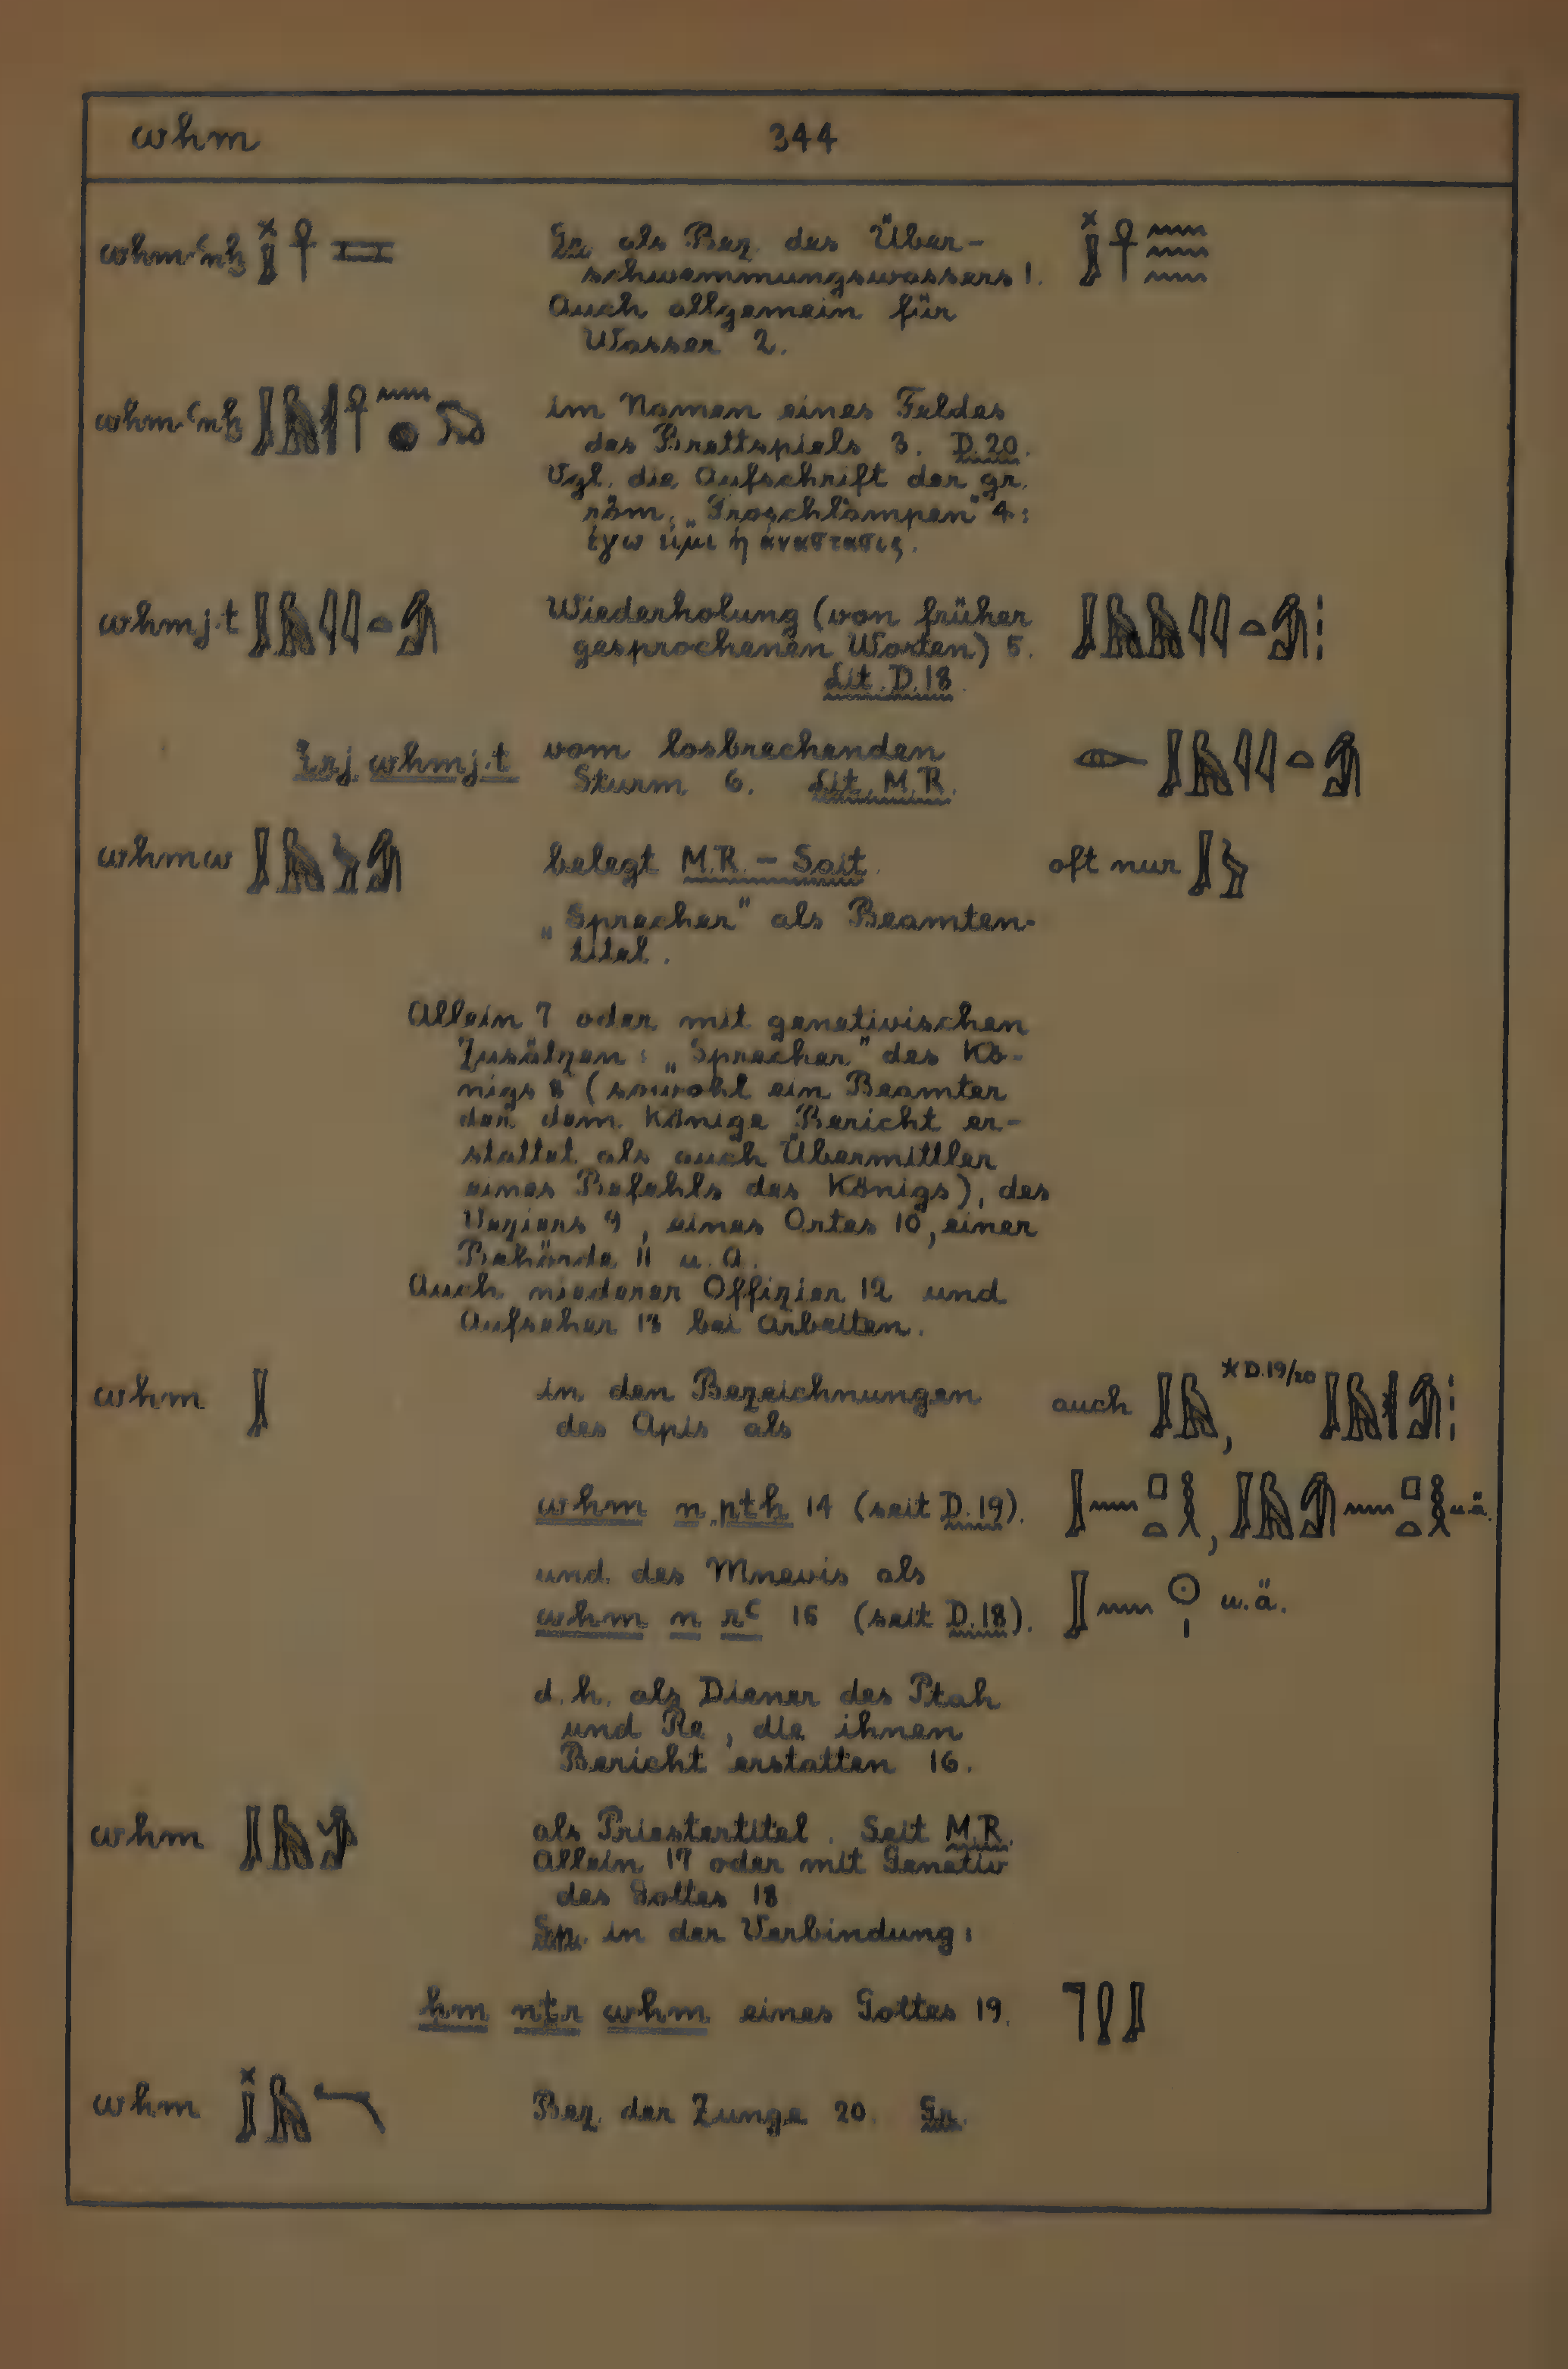 whm 344
whm-ꜥnḫ Gr. als Bez. des Über-
schwemmungswassers 1.
Auch allgemein für
Wasser 2.
whm-ꜥnḫ im Namen eines Feldes
des Brettspiels 3. D. 20.
Vgl. die Aufschrift der gr.
röm. „Froschlampen" 4:
ἐγω εἰμι ἡ ἀναστασις.
whmj.t Wiederholung (von früher
gesprochenen Worten) 5.
Lit. D. 18.
irj whmj.t vom losbrechenden
Sturm 6. Lit. M.R.
whmw belegt M.R. - Sait. oft nur
„Sprecher" als Beamten-
titel.
Allein 7 oder mit genetivischen
Zusätzen: „Sprecher" des Kö-
nigs 8 (sowohl ein Beamter
der dem Könige Bericht er-
stattet als auch Übermittler
eines Befehls des Königs), des
Veziers 9, eines Ortes 10, einer
Behörde 11 u. a.
Auch niederer Offizier 12 und
Aufseher 13 bei Arbeiten.
whm in den Bezeichnungen auch , * D. 19/20
des Apis als
whm n ptḥ 14 (seit D. 19). , u.ä.
und des Mnevis als
whm n rꜥ 15 (seit D. 18). u.ä.
d. h. als Diener des Ptah
und Re, die ihnen
Bericht erstatten 16.
whm als Priestertitel. Seit M.R.
Allein 17 oder mit Genetiv
des Gottes 18
Sp. in der Verbindung:
ḥm nṯr whm eines Gottes 19.
whm Bez. der Zunge 20. Gr.